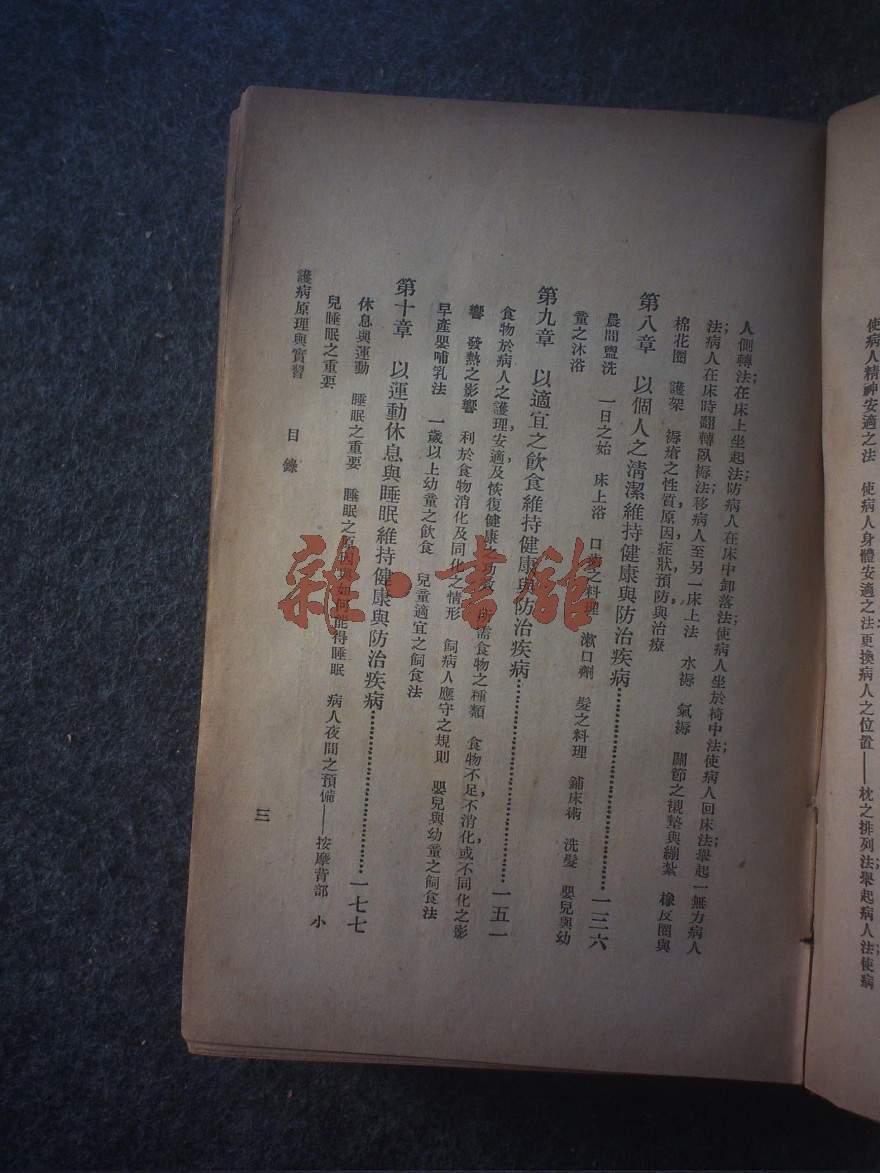 使病人精神安適之法　使病人身體安適之法更換病人之位置——枕之排列法;舉起病人法;使病
人側轉法;在床上坐起法;防病人在床中卸落法;使病人坐於椅中法;使病人回床法;舉起一無力病人
法;病人在床時翻轉臥褥法;移病人至另一床上法　水褥　氣褥　關節之襯墊與綳紮　橡皮圈與
棉花圈　護架　褥瘡之性質,原因,症狀,預防與治療
第八章　以個人之清潔維持健康與防治疾病……一三六
晨間盥洗　一日之始　床上浴　口齒之料理　漱口劑　髮之料理　鋪床術　洗髮　嬰兒與幼
童之沐浴
第九章　以適宜之飲食維持健康與防治疾病……一五一
食物於病人之護理,安適及恢復健康之功效　所需食物之種類　食物不足,不消化,或不同化之影
響　發熱之影響　利於食物消化及同化之情形　飼病人應守之規則　嬰兒與幼童之飼食法
早產嬰哺乳法　一歲以上幼童之飲食　兒童適宜之飼食法
第十章　以運動休息與睡眠維持健康與防治疾病……一七七
休息與運動　睡眠之重要　睡眠之原因與如何能得睡眠　病人夜間之預備——按摩背部　小
兒睡眠之重要
護病原理與實習　目錄　三
雜·書館